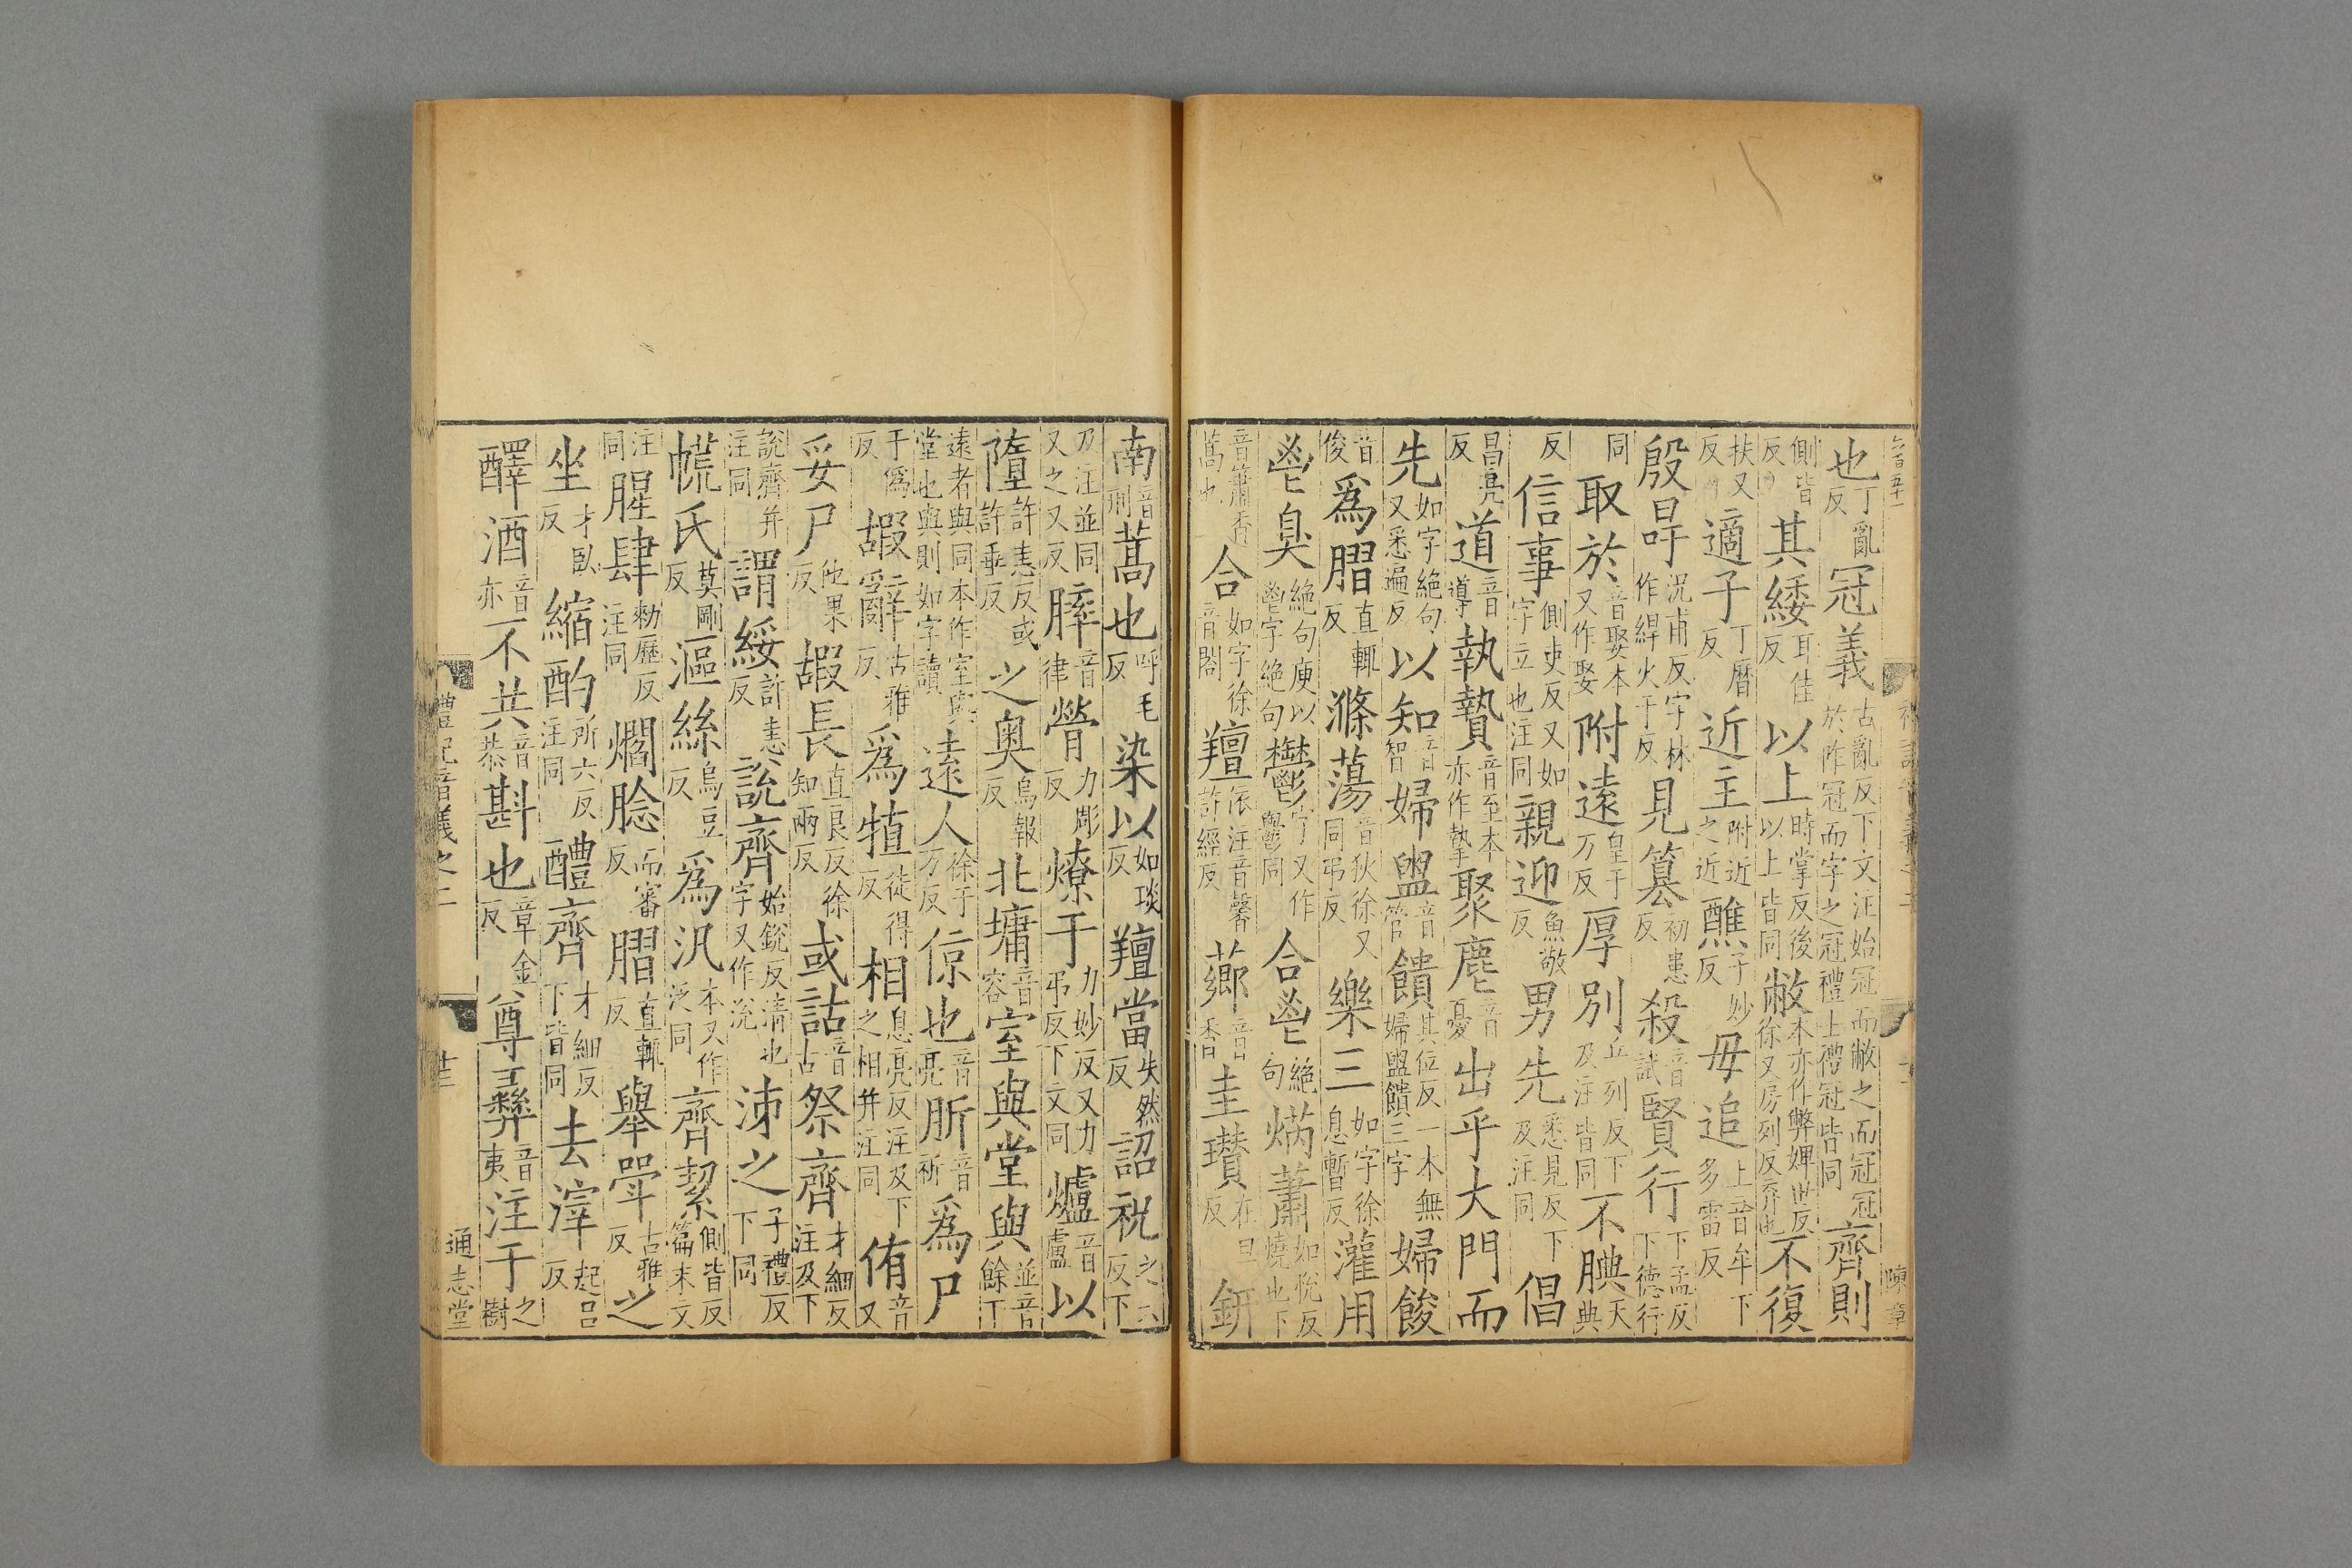 也丁亂反冠義古亂反下文注始冠而敝之而冠冠於阼冠而字之冠禮上禮冠皆同齊則
側皆反其緌耳佳反以上時掌反後以上皆同敝本亦作弊婢世反徐又房列反弃也不復
扶又反適子丁曆反近主附近之近醮子妙反毋追上音牟下多雷反
殷冔況甫反字林作縪火于反見篡初患反殺音試賢行下孟反下德行
同取於音娶本又作娶附遠皇于万反厚別兵列反下及注皆同不腆天典
反信事側吏反又如字立也注同親迎魚敬反男先悉見反下及注同倡
昌亮反道音導執贄音至本亦作摯聚麀音憂出乎大門而
先如字絕句又悉遍反以知音智婦盥音管饋其位反一本無婦盥饋三字婦餕
音俊爲腊直輒反滌蕩音狄徐又同弔反樂三如字徐息暫反灌用
鬯臭絕句庾以鬯字絕句鬱字又作鬱同合鬯絕句焫蕭如悅反燒也下
音蕭香蒿也合如字徐音閤羶依注音馨許經反薌音香圭瓚在旦反鈃
南音刑蒿也呼毛反染以如琰反羶當失然反詔祝之六反下
乃注並同又之又反膟音律膋力彫反燎于力妙反又力弔反下文同爐音盧以
隋許恚反或許垂反之奧烏報反北墉音容室與堂與並音餘下
遠者與同本作室與堂也與則如字讀遠人徐于万反倞也音亮肵音祈爲尸
于僞反嘏辭古雅反爲犆徒得反相息亮反注及下之相并注同侑音又
妥尸他果反嘏長直良反徐知兩反或詁音古祭齊才細反注及下
說齊并注同謂綏許恚反說齊始銳反清也字又作涗泲之子禮反下同
㡆氏莫剛反漚絲烏豆反爲汎本又作泛同齊絜側皆反篇末文
注同腥肆勑歷反注同爓腍而審反腊直輒反舉斝古雅反之
坐才臥反縮酌所六反注同醴齊才細反下皆同去滓起呂反
醳酒音亦不共音恭斟也章金反尊彝音夷注于之樹
禮記音義之二
通志堂
陳章